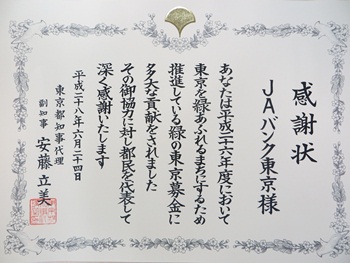 感謝状
JAバンク東京様
あなたは平成二十六年度において
東京を緑あふれるまちにするため
推進している緑の東京募金に
多大な貢献をされました
その御協力に対し都民を代表して
深く感謝いたします
平成二十八年六月二十四日
東京都知事代理
副知事 安藤立美